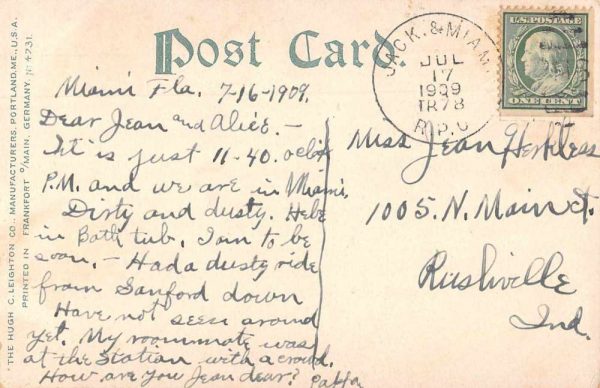 Post Card.
THE HUGH C. LEIGHTON CO., MANUFACTURERS, PORTLAND, ME., U.S.A.
PRINTED IN FRANKFORT O/MAIN, GERMANY. No 4231.
JACK. & MIAMI
JUL
17
1909
TR 78
R.P.O
U.S. POSTAGE
ONE CENT
Miami Fla. 7-16-1909.
Dear Jean and Alice. -
It is just 11-40. oclck
P.M. and we are in Miami,
Dirty and dusty.
in Bath tub, I am to be
soon. - Had a dusty ride
from Sanford down
Have not seen around
yet. My roommate was
at the station with a crowd.
How are you Jean dear?
Miss Jean
1005. N. Main St.
Rushville
Ind.